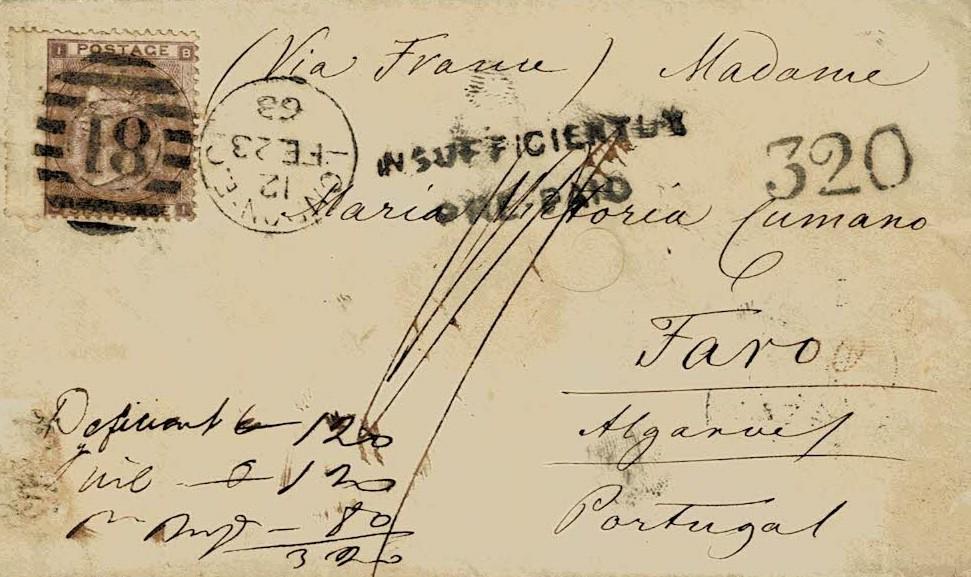 I POSTAGE B
18
LONDON-E.C
12
FE 23
68
(Via France) Madame
INSUFFICIENTLY
PRE-PAID
320
Maria Victoria Cumano
Faro
Algarves
Portugal
Deficient 6 — 120
120
80
320